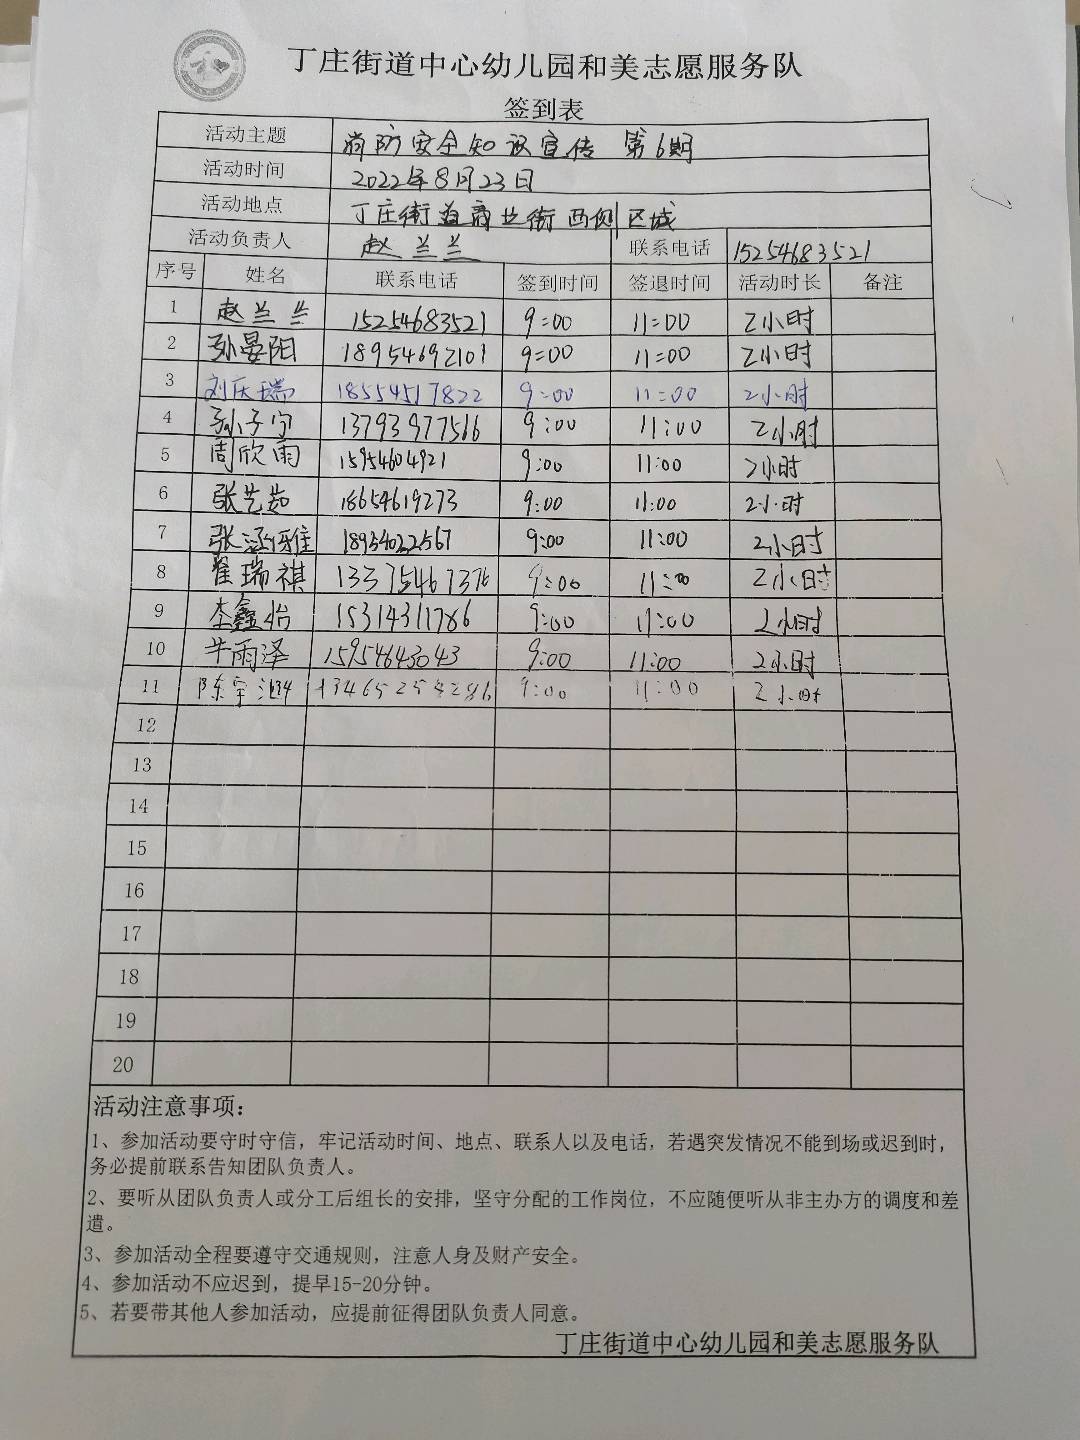 丁庄街道中心幼儿园和美志愿服务队
签到表
活动主题 消防安全知识宣传 第6期
活动时间 2022年8月23日
活动地点 丁庄街道商业街西侧区域
活动负责人 赵兰兰 联系电话 15254683521
序号 姓名 联系电话 签到时间 签退时间 活动时长 备注
1 赵兰兰 15254683521 9:00 11:00 2小时
2 孙晏阳 18954692101 9:00 11:00 2小时
3 刘庆瑞 18554517822 9:00 11:00 2小时
4 孙子宁 13793977566 9:00 11:00 2小时
5 周欣雨 15954604921 9:00 11:00 2小时
6 张艺茹 18654619273 9:00 11:00 2小时
7 张涵雅 18954022567 9:00 11:00 2小时
8 崔瑞祺 13375467376 9:00 11:00 2小时
9 李鑫怡 15314311786 9:00 11:00 2小时
10 牛雨泽 15954643043 9:00 11:00 2小时
11 陈宇 9:00 11:00 2小时
12
13
14
15
16
17
18
19
20
活动注意事项：
1、参加活动要守时守信，牢记活动时间、地点、联系人以及电话，若遇突发情况不能到场或迟到时，
务必提前联系告知团队负责人。
2、要听从团队负责人或分工后组长的安排，坚守分配的工作岗位，不应随便听从非主办方的调度和差
遣。
3、参加活动全程要遵守交通规则，注意人身及财产安全。
4、参加活动不应迟到，提早15-20分钟。
5、若要带其他人参加活动，应提前征得团队负责人同意。
丁庄街道中心幼儿园和美志愿服务队